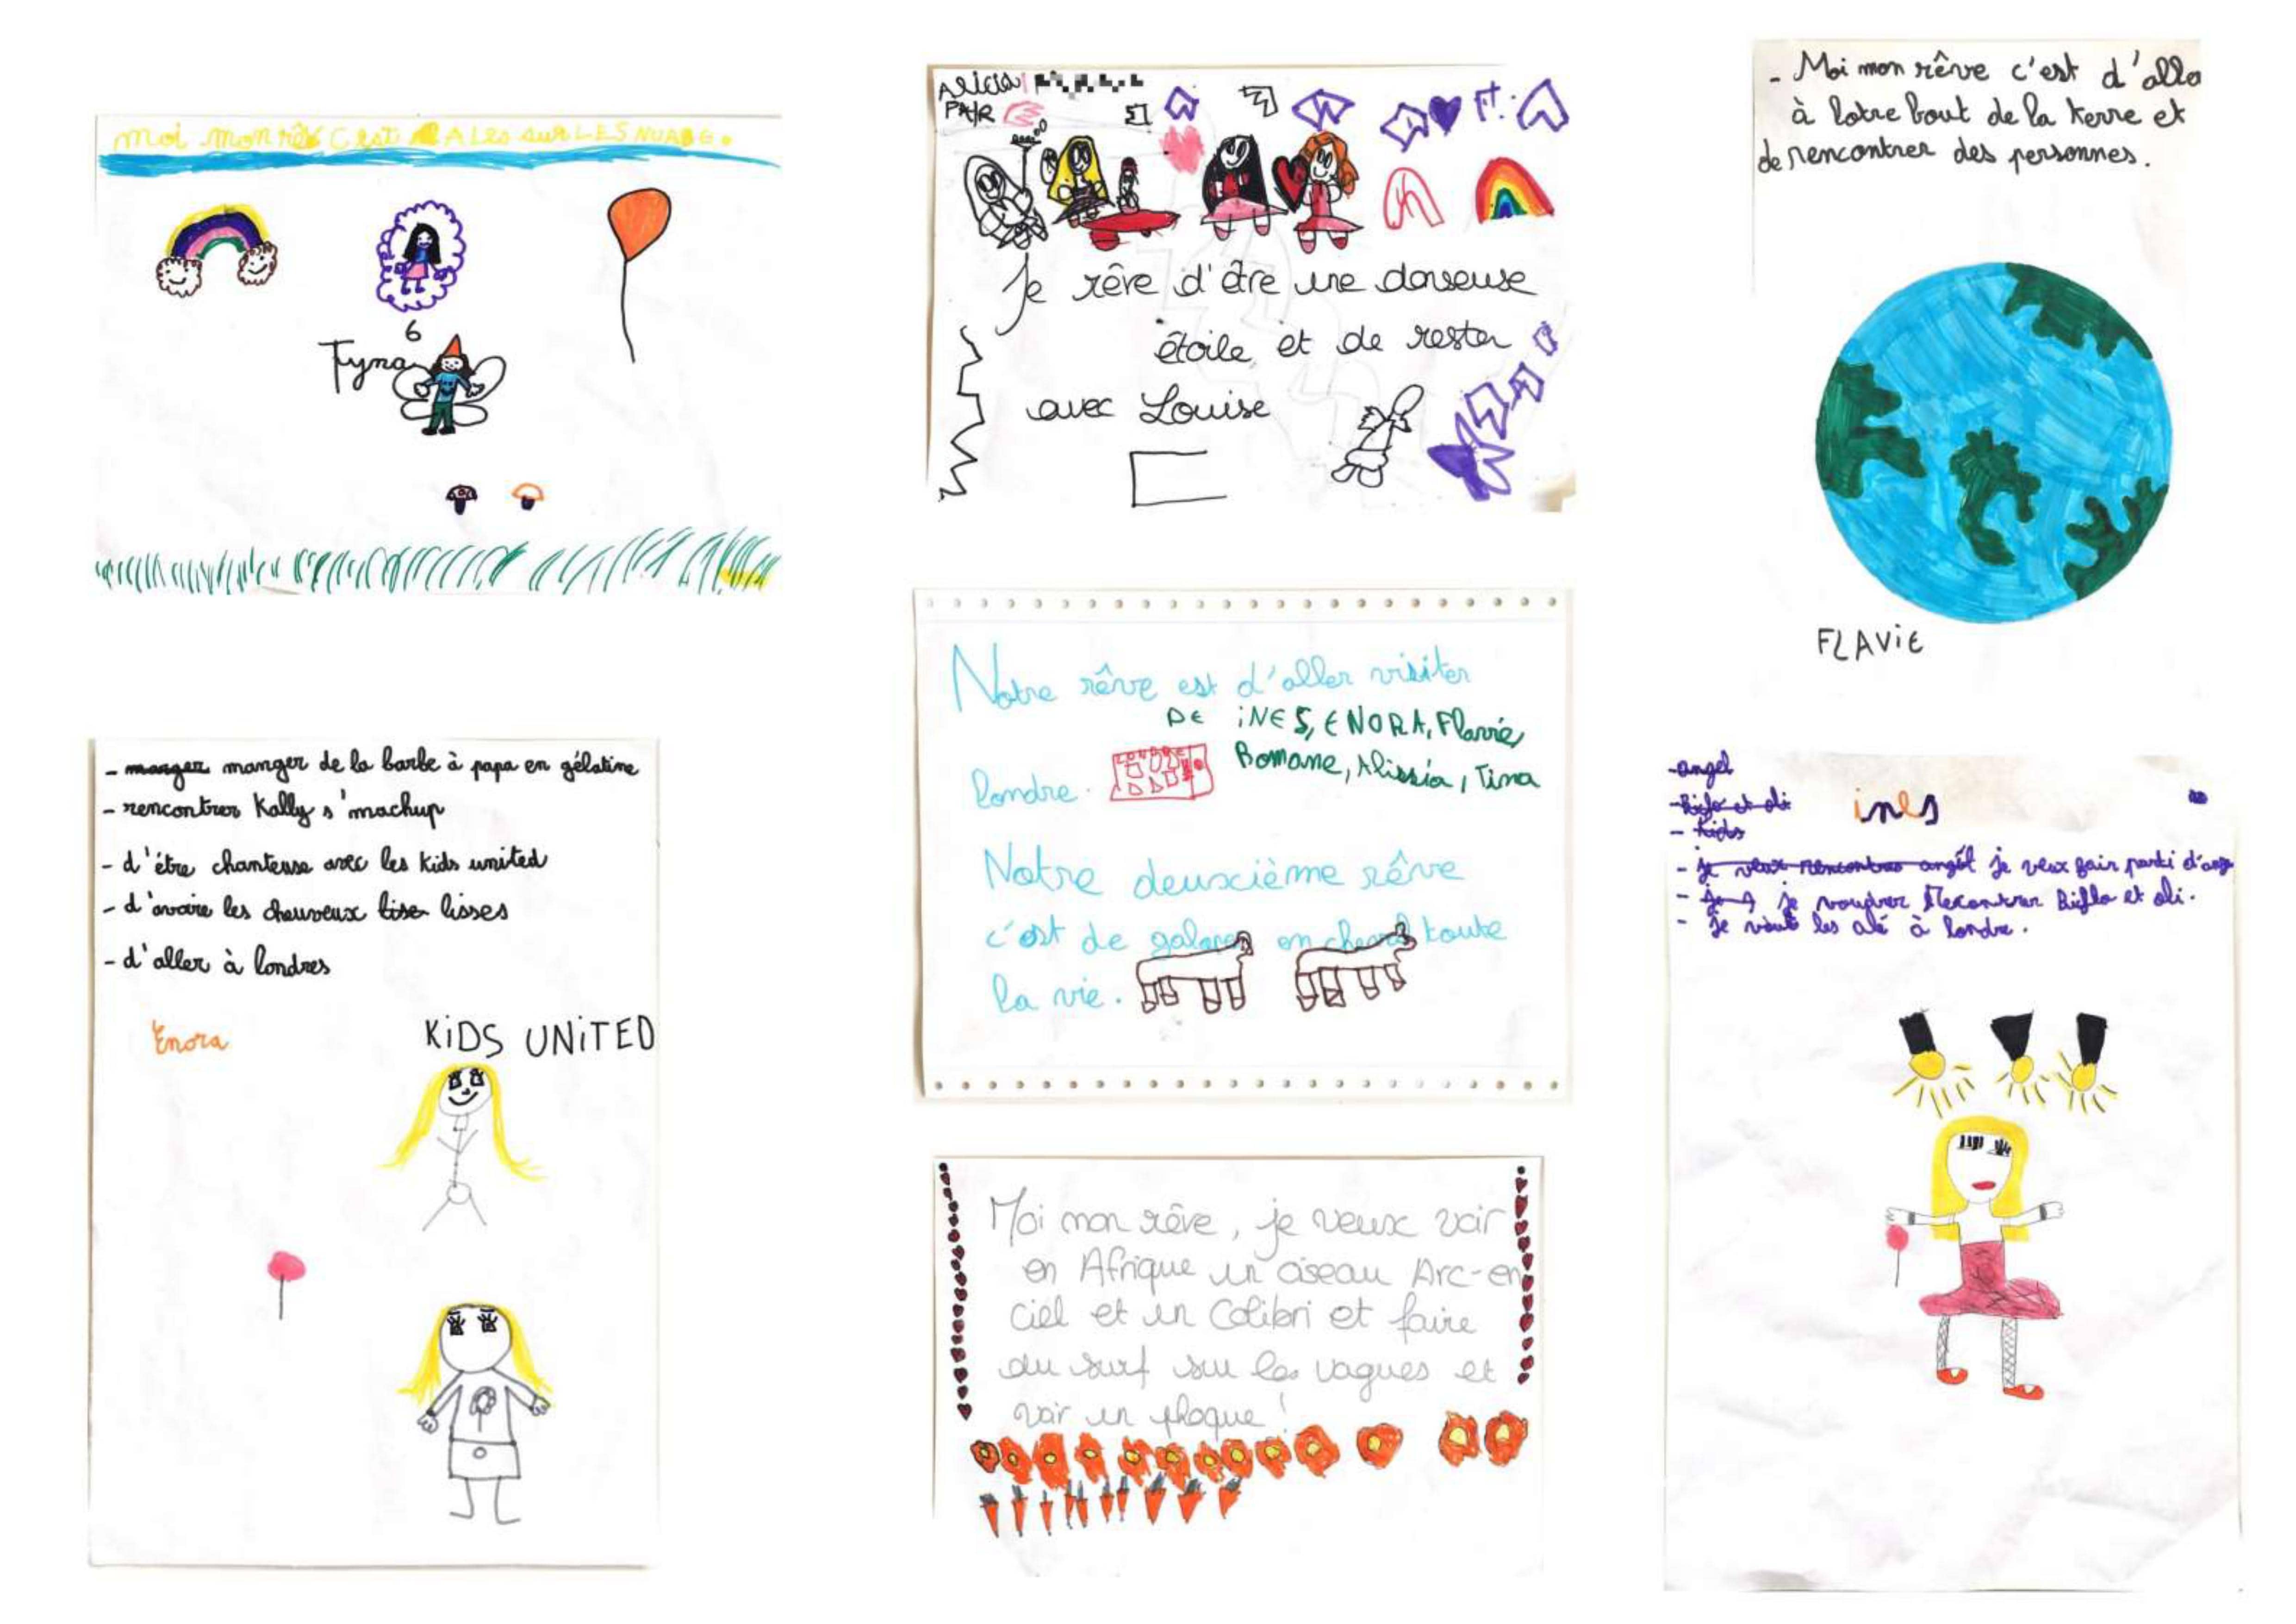 moi mon rêve C'est ALes sur LES NUAGE.
6
Tyna
Alicia
PAR
Je rêve d'être une danseuse
étoile et de rester
avec Louise
- Moi mon rêve c'est d'alla
à lotre bout de la terre et
de rencontrer des personnes.
FLAViE
Notre rêve est d'aller visiter
DE iNES, ENORA, Flavie,
Romane, Alissia, Tina
londre.
Notre deuxcième rêve
c'est de galoper en cheval toute
la vie.
- manger manger de la barbe à papa en gélatine
- rencontrer Kally s'machup
- d'être chanteuse avec les Kids united
- d'avoire les cheuveux lise lisses
- d'aller à londres
Enora
KiDS UNiTED
Moi mon rêve, je veux voir
en Afrique un oiseau Arc-en
ciel et un Colibri et faire
du surf sur les vagues et
voir un phoque!
-angel
-Bigflo et oli
- Kids
ines
- je veux rencontrer angèl je veux fair parti d'ang
- je voudrer Recontrer Bigflo et oli.
- je veut les alé à londre.